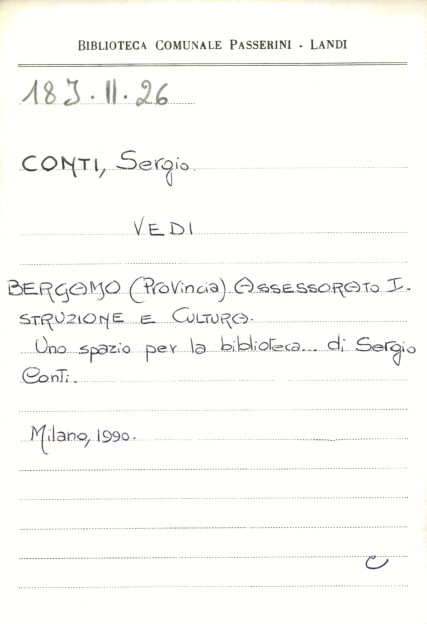 BIBLIOTECA COMUNALE PASSERINI - LANDI
18 J. II. 26
CONTI, Sergio.
VEDI
BERGAMO (Provincia). ASSESSORATO I-
STRUZIONE E CULTURA.
Uno spazio per la biblioteca... di Sergio
Conti.
Milano, 1990.
C